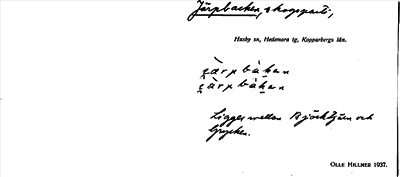 Järpbacken, skogsparti,
Husby sn, Hedemora tg, Kopparbergs län.
Ligger mellan Björkhjum och
Grycken.
OLLE HILLNER 1937.